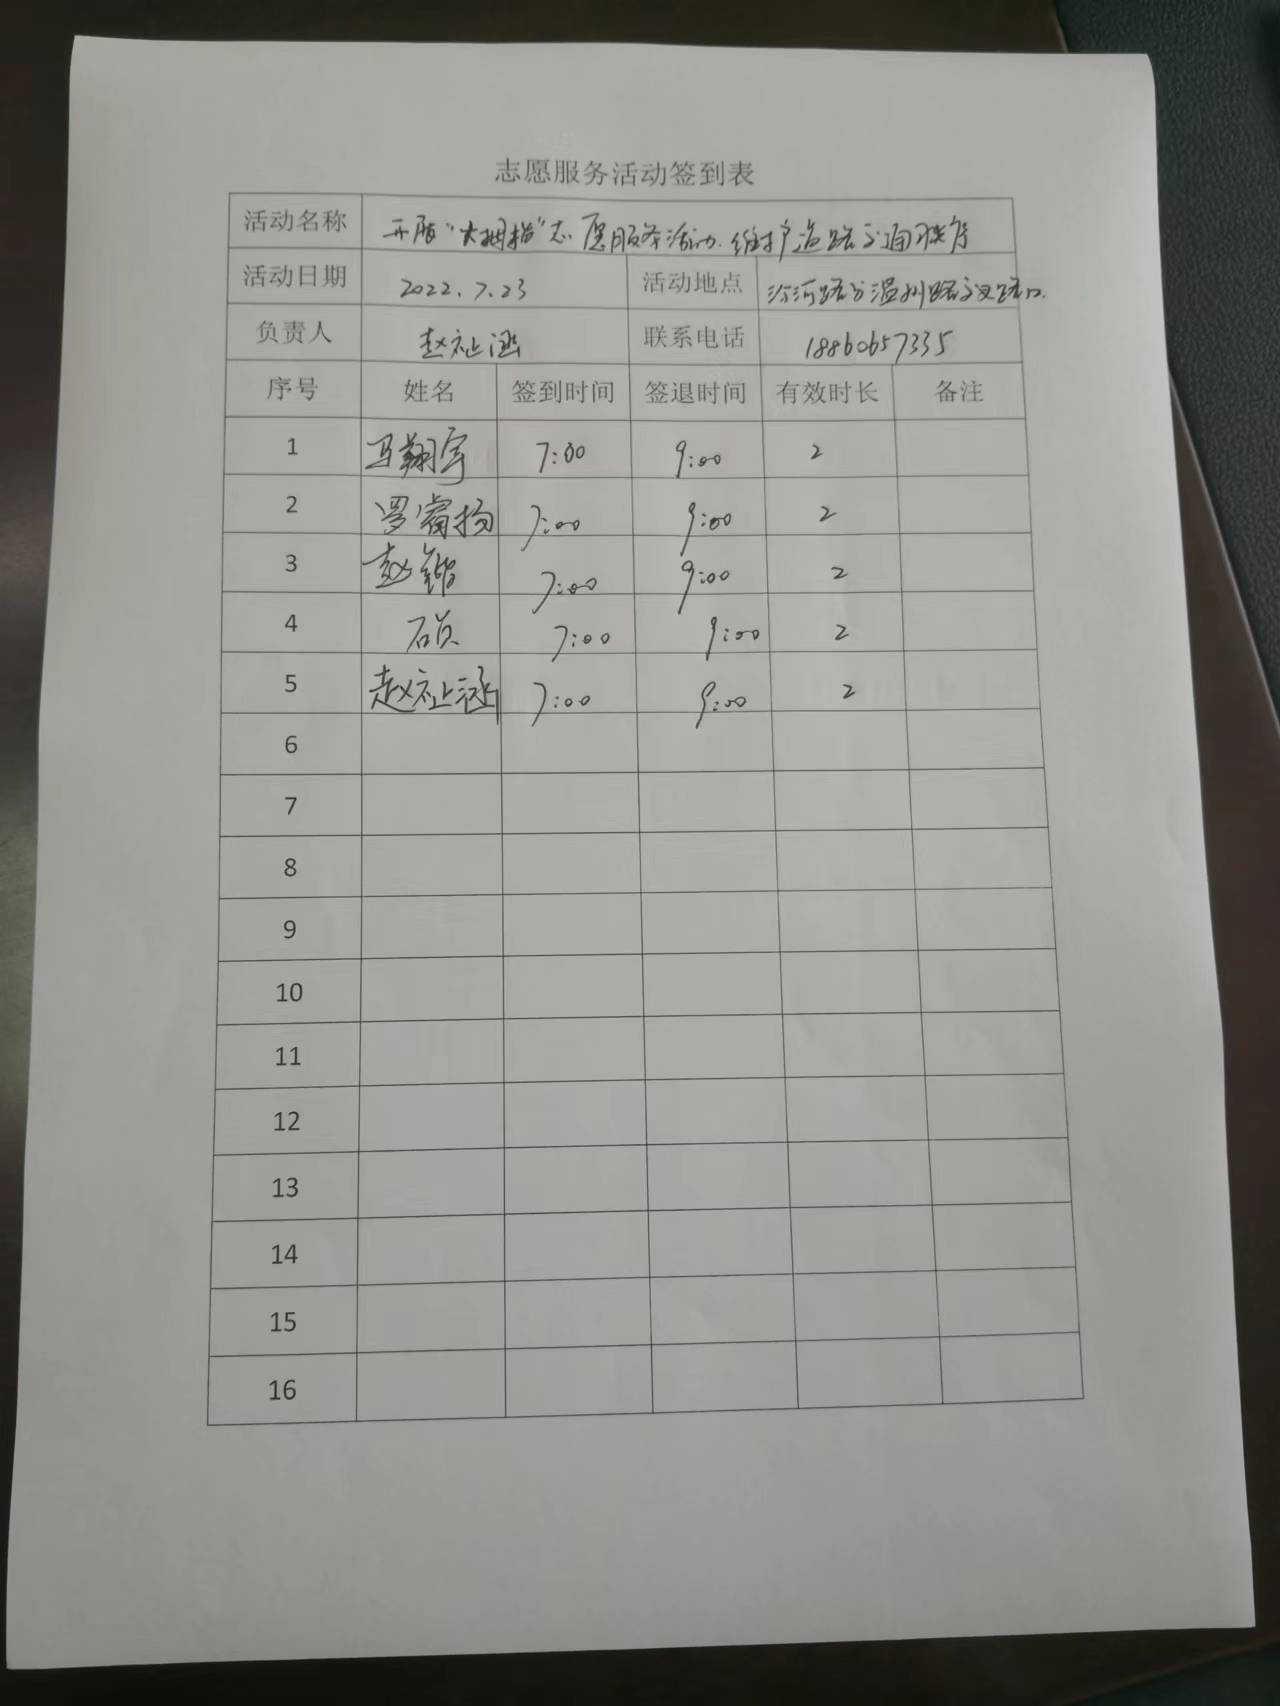 志愿服务活动签到表
活动名称 开展“大拇指”志愿服务活动.维护道路交通秩序
活动日期 2022.7.23 活动地点 汾河路与温州路交叉路口.
负责人 赵祉涵 联系电话 18860657335
序号 姓名 签到时间 签退时间 有效时长 备注
1 马翔宇 7:00 9:00 2
2 罗睿扬 7:00 9:00 2
3 赵锴 7:00 9:00 2
4 石贞 7:00 9:00 2
5 赵祉涵 7:00 9:00 2
6
7
8
9
10
11
12
13
14
15
16